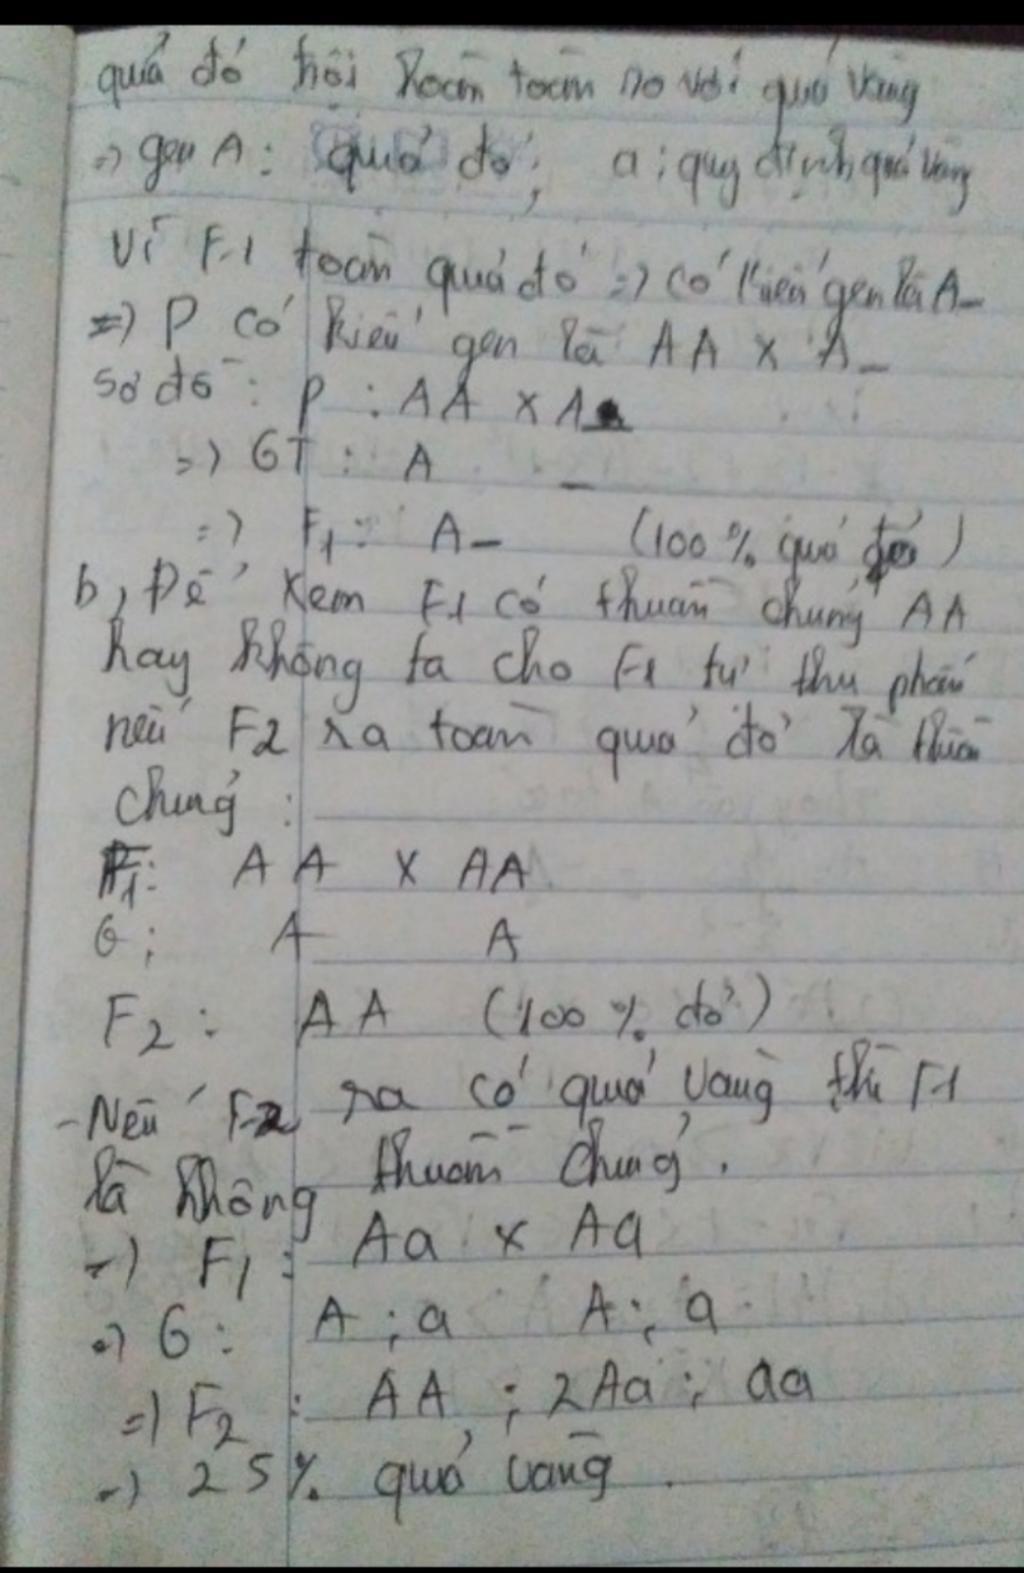 quả đỏ trội hoàn toàn so với quả vàng
=> gen A: quả đỏ; a: quy định quả vàng
Vì F1 toàn quả đỏ => có kiểu gen là A_
=> P có kiểu gen là AA x A_
Sơ đồ: P: AA x A_
=> GT: A _
=> F1: A_ (100% quả đỏ)
b, Để xem F1 có thuần chủng AA
hay không ta cho F1 tự thụ phấn
nếu F2 ra toàn quả đỏ là thuần
chủng:
F1: AA x AA
G: A A
F2: AA (100% đỏ)
- Nếu F2 ra có quả vàng thì F1
là không thuần chủng.
=> F1: Aa x Aa
=> G: A; a A; a
=> F2: AA; 2Aa; aa
=> 25% quả vàng.